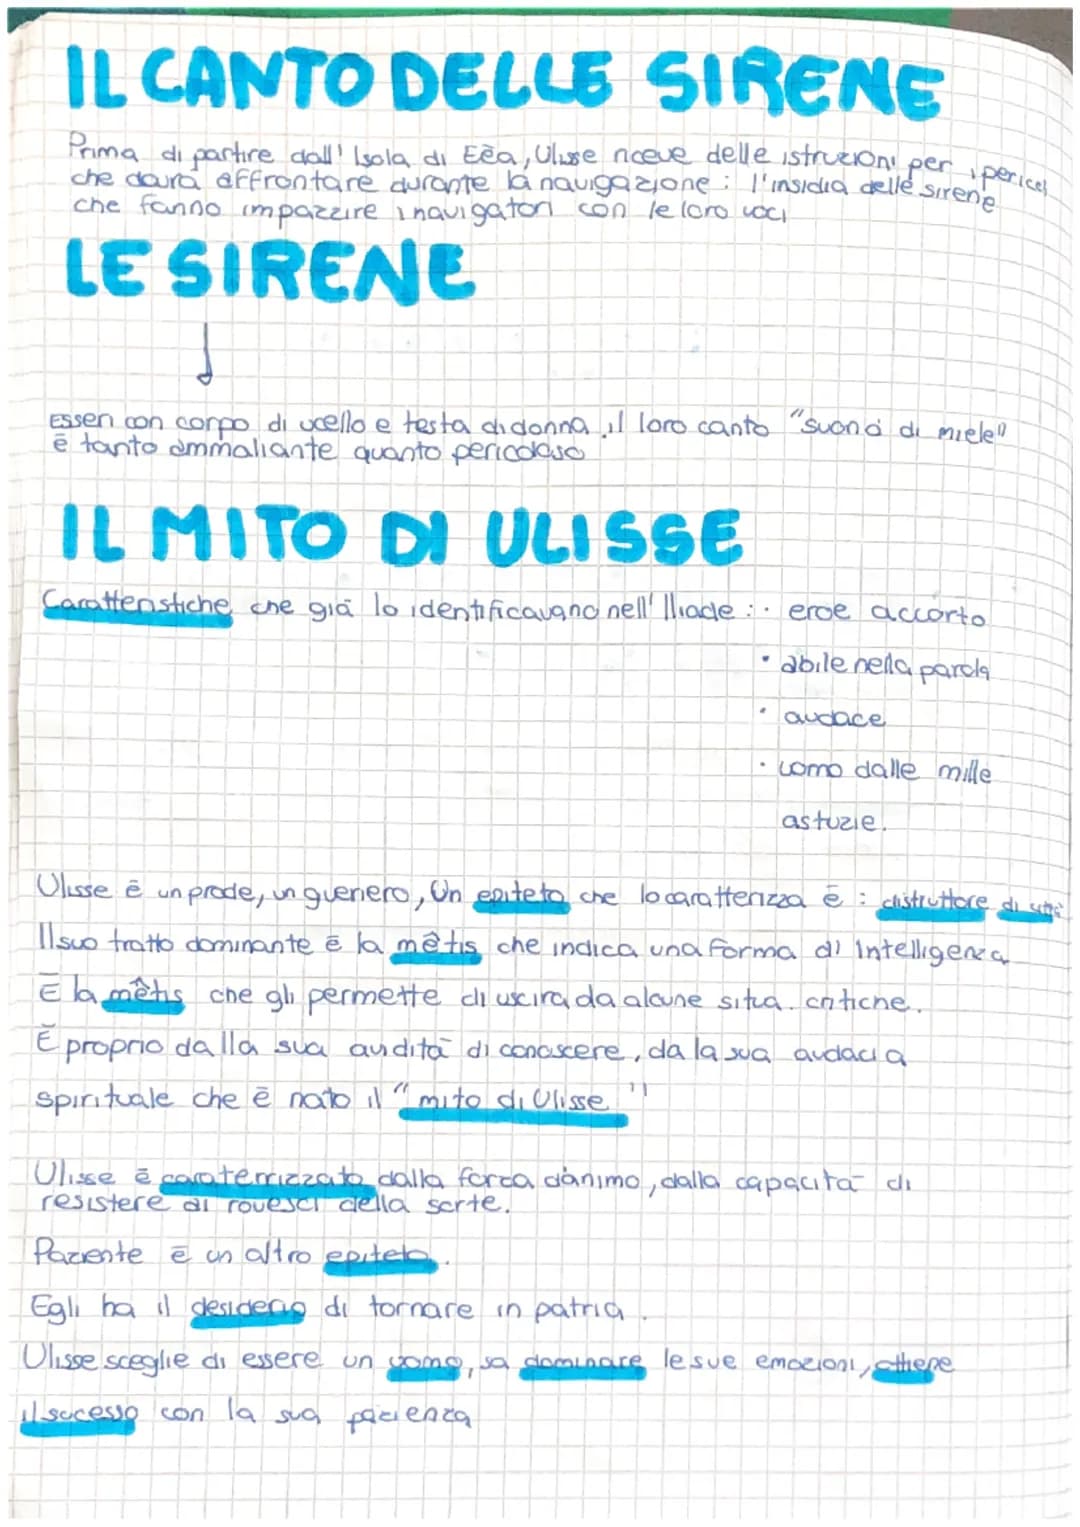 IL CANTO DELLE SIRENE
Prima di partire dall' Isola di Eèa, Ulisse riceve delle istruzioni per i pericoli
che dovrà affrontare durante la navigazione : l'insidia delle sirene
che fanno impazzire i navigatori con le loro voci
LE SIRENE
Esseri con corpo di ucello e testa di donna, il loro canto "suono di miele"
è tanto ammaliante quanto pericoloso
IL MITO DI ULISSE
Caratteristiche che già lo identificavano nell' Iliade : · eroe accorto
· abile nella parola
· audace
· uomo dalle mille
astuzie.
Ulisse è un prode, un guerriero, Un epiteto che lo caratterizza è : distruttore di città
Il suo tratto dominante è la mêtis che indica una forma di intelligenza
È la mêtis che gli permette di uscira da alcune situa. critiche.
È proprio dalla sua avidità di conoscere, da la sua audacia
spirituale che è nato il "mito di Ulisse"
Ulisse è caraterrizzato dalla forza d'animo, dalla capacità di
resistere ai rovesci della sorte.
Paziente è un altro epiteto.
Egli ha il desiderio di tornare in patria.
Ulisse sceglie di essere un uomo, sa dominare le sue emozioni, ottiene
il sucesso con la sua pazienza